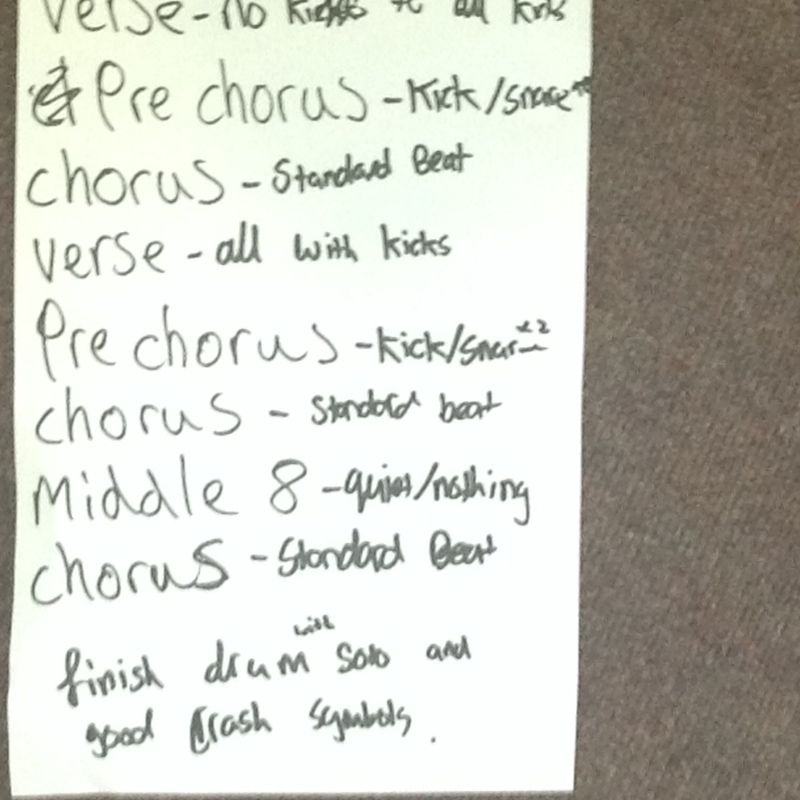 verse - no kicks to all kicks
Pre chorus - Kick/snare
chorus - Standard Beat
verse - all with kicks
Pre chorus - kick/snare x2
chorus - Standard beat
Middle 8 - quiet/nothing
chorus - Standard Beat
finish drum with solo and
good Crash Symbols.